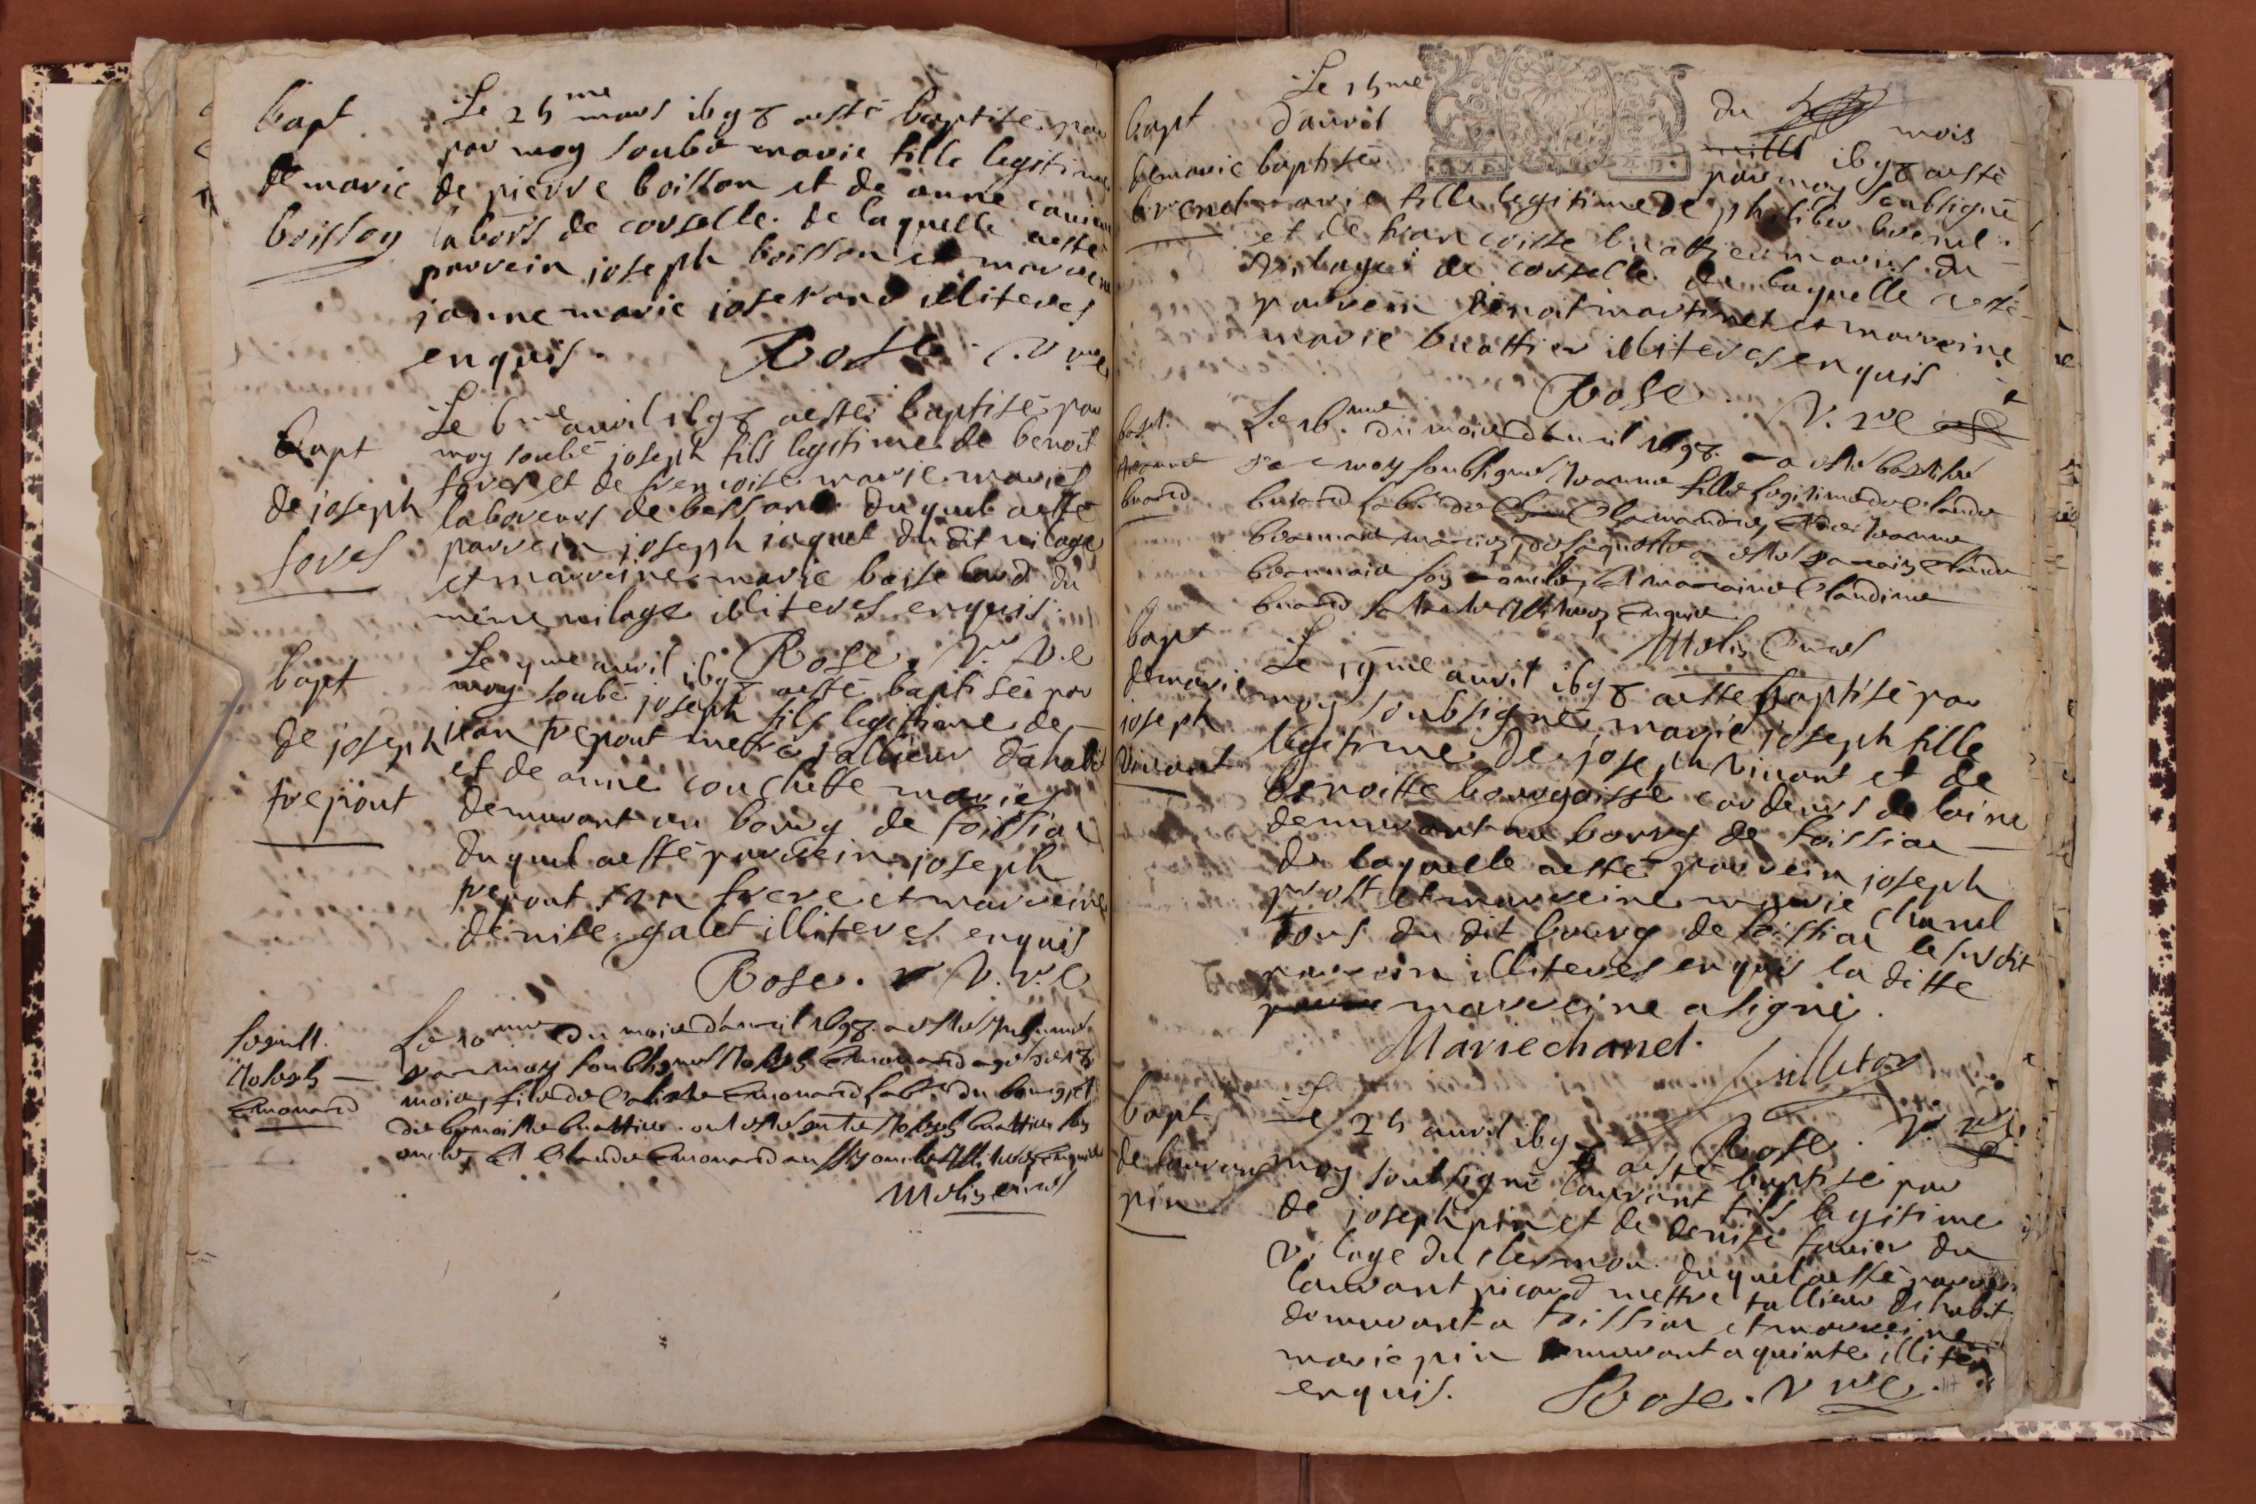 bapt
de marie
boisson
Le 25me mars 1698 a esté baptisé par
par moy soubé marie fille legitime
de pierre boisson et de anne
labors de corselle. de laquelle a esté
parrein joseph boisson et marrein
janne marie joserand illiteres
enquis. Rose. V re
bapt
de joseph
fores
Le 6me avril 1698 a esté baptisé par
moy soubé joseph fils legitime de benoit
fores et de frençoise marie mariés
laboreurs de bessand duquel a esté
parrein joseph jaquet du dit vilage
et marreine marie
même vilage illiteres enquis.
Rose. V. V.e
bapt
de joseph
trepout
Le 9me avril 1698 a esté baptisé par
moy soubé joseph fils legitime de
jean trepout metre tallieur d'habit
et de anne couchette mariés
demurant au bourg de foissiar
duquel a esté parrein joseph
trepout son frere et marreine
denise galet illiteres enquis
Rose. V. r.e
Sepult.
Joseph
Emonard
Le 10me du mois d'avril 1698. a esté Inhumé
par moy soubsigné Joseph Emonard agé de 18
mois, fils de Emonard lab. du bourg, et
de benoiste buattier. ont esté Joseph buattier son
oncle et Claude Emonard aussy oncle Illiteres enquis
bapt
de marie
brenel
Le 15me
d'avril
du
mois
1698 a esté
baptisée
par moy soubsigné
marie fille legitime de philiber brenel
et de françoisse buattier mariés du
vilage de corselle de laquelle a esté
parrein benoit martinet et marreine
marie buattier illiteres enquis
Rose. V. re
bapt.
Jeanne
buard
Le 16.me du mois d'avril 1698. a esté baptisée
par moy soubsigné Jeanne fille legitime de Claude
buard lab. de et de Jeanne
mariez, de laquelle a esté parrain Claude
son oncle, et maraine Claudine
buard sa tante Illiterez enquis.
bapt
de marie
joseph
vincent
Le 19me avril 1698 a esté baptisé par
moy soubsigné marie joseph fille
legitime de joseph vincent et de
benoitte bourgoisse cardeurs de laine
demurant au bourg de foissiar
de laquelle a esté parrein joseph
prost et marreine marie chanel
tous du dit bourg de foissiar le sus dit
parrein illiteres enquis la ditte
marreine a signé.
Marie chanel.
Rose. V. re
bapt
de laurans
pin
Le 25 avril 1698 a esté baptisé par
moy soubsigné laurant fils legitime
de joseph pin et de denise favier du
vilage du clermon. duquel a esté parrein
laurant picard mettre tallieur d'habit
demurant a foissiar et marreine
marie pin demurant a quinte illiteres
enquis. Rose. V re